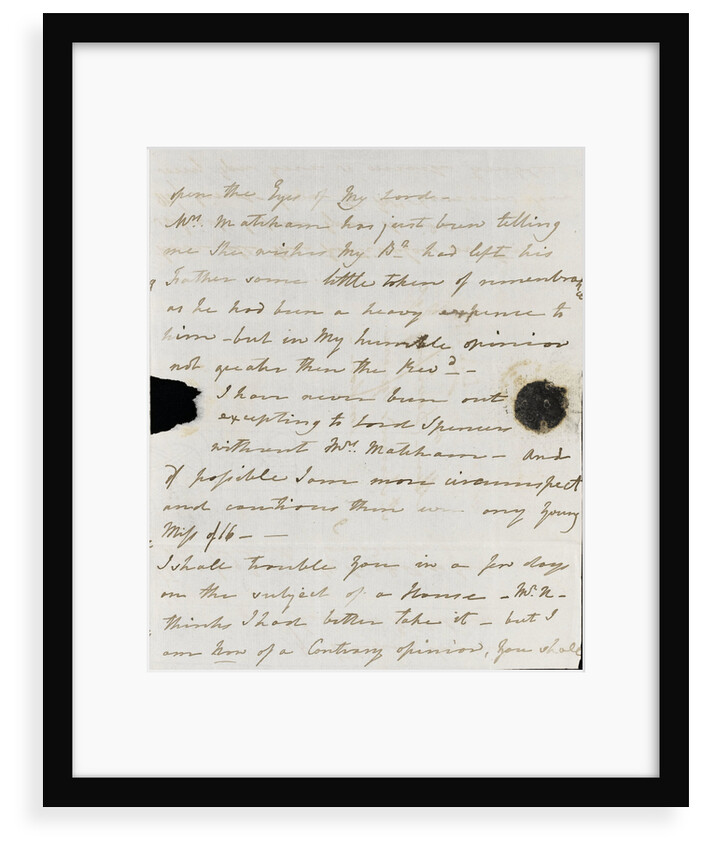 open the Eyes of My Lord -
Mrs. Matcham has just been telling
me She wishes My Br. had left his
Father some little token of remembrance
as he had been a heavy expence to
him - but in My humble opinion
not greater then the Revd. -
I have never been out
excepting to Lord Spencers
without Mrs. Matcham - and
if possible I am more circumspect
and cautious then ever any Young
Miss of 16 - -
I shall trouble You in a few days
on the subject of a House - Mr. N -
thinks I had better take it - but I
am Now of a Contrary opinion, You shall